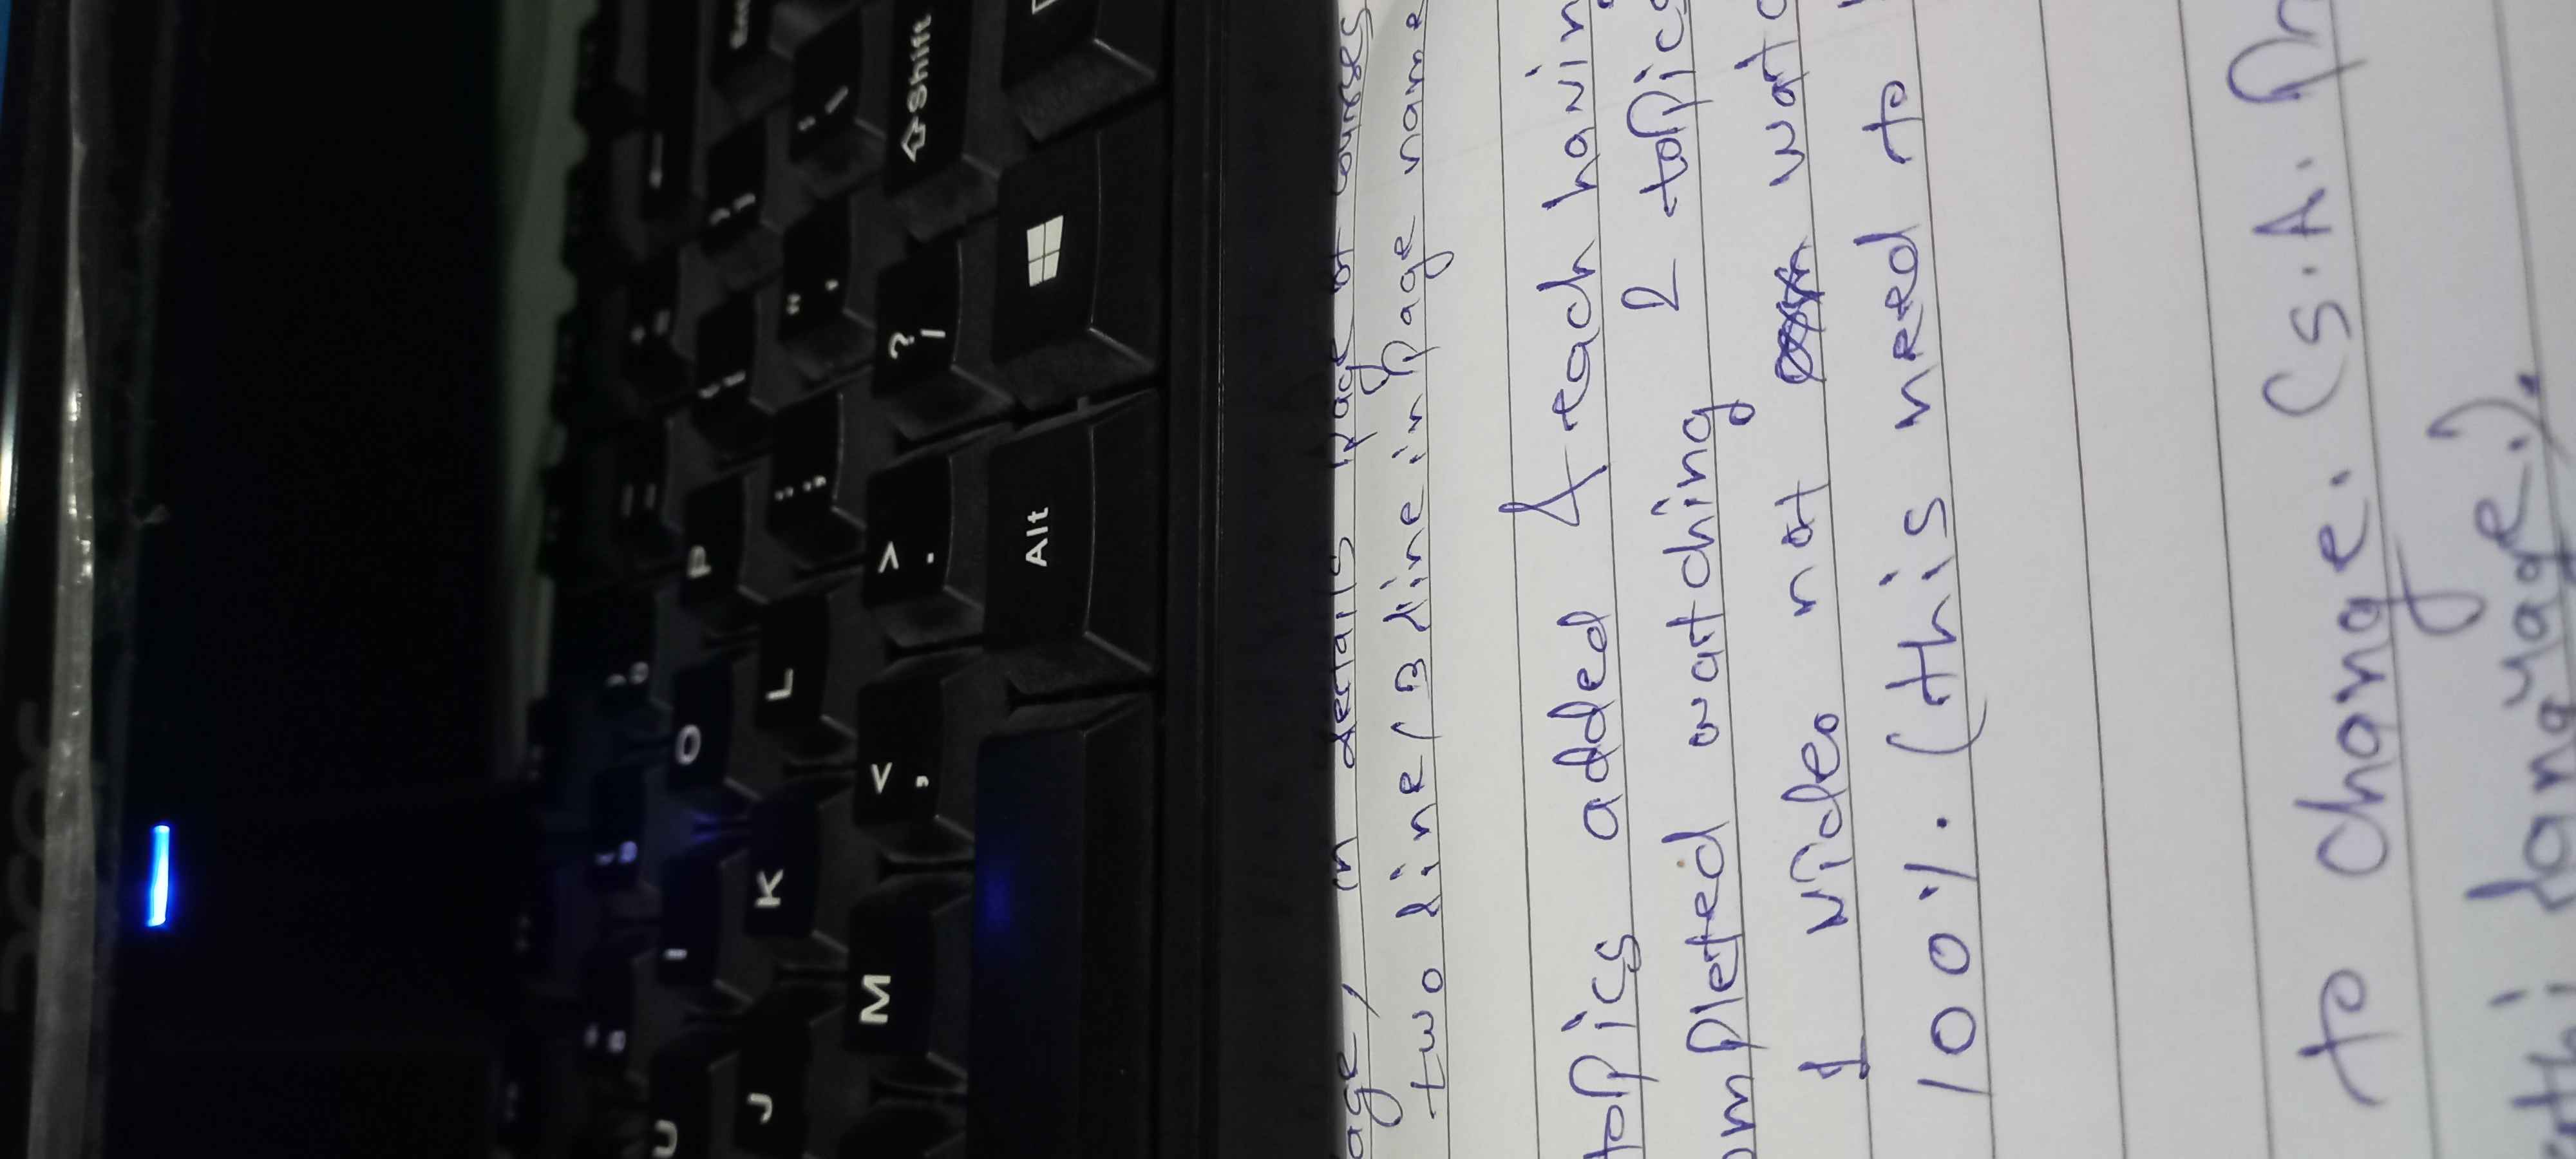 acer
U I O P { [ } ]
J K L : ; " '
M < , > . ? / Shift
Alt
age, in details page of courses
two line / 3 line in page name
topics added & each havin
ompleted watching 2 topics
1 video not watc
100%. (this need to
to change. (S.A. Pr
athi language.).